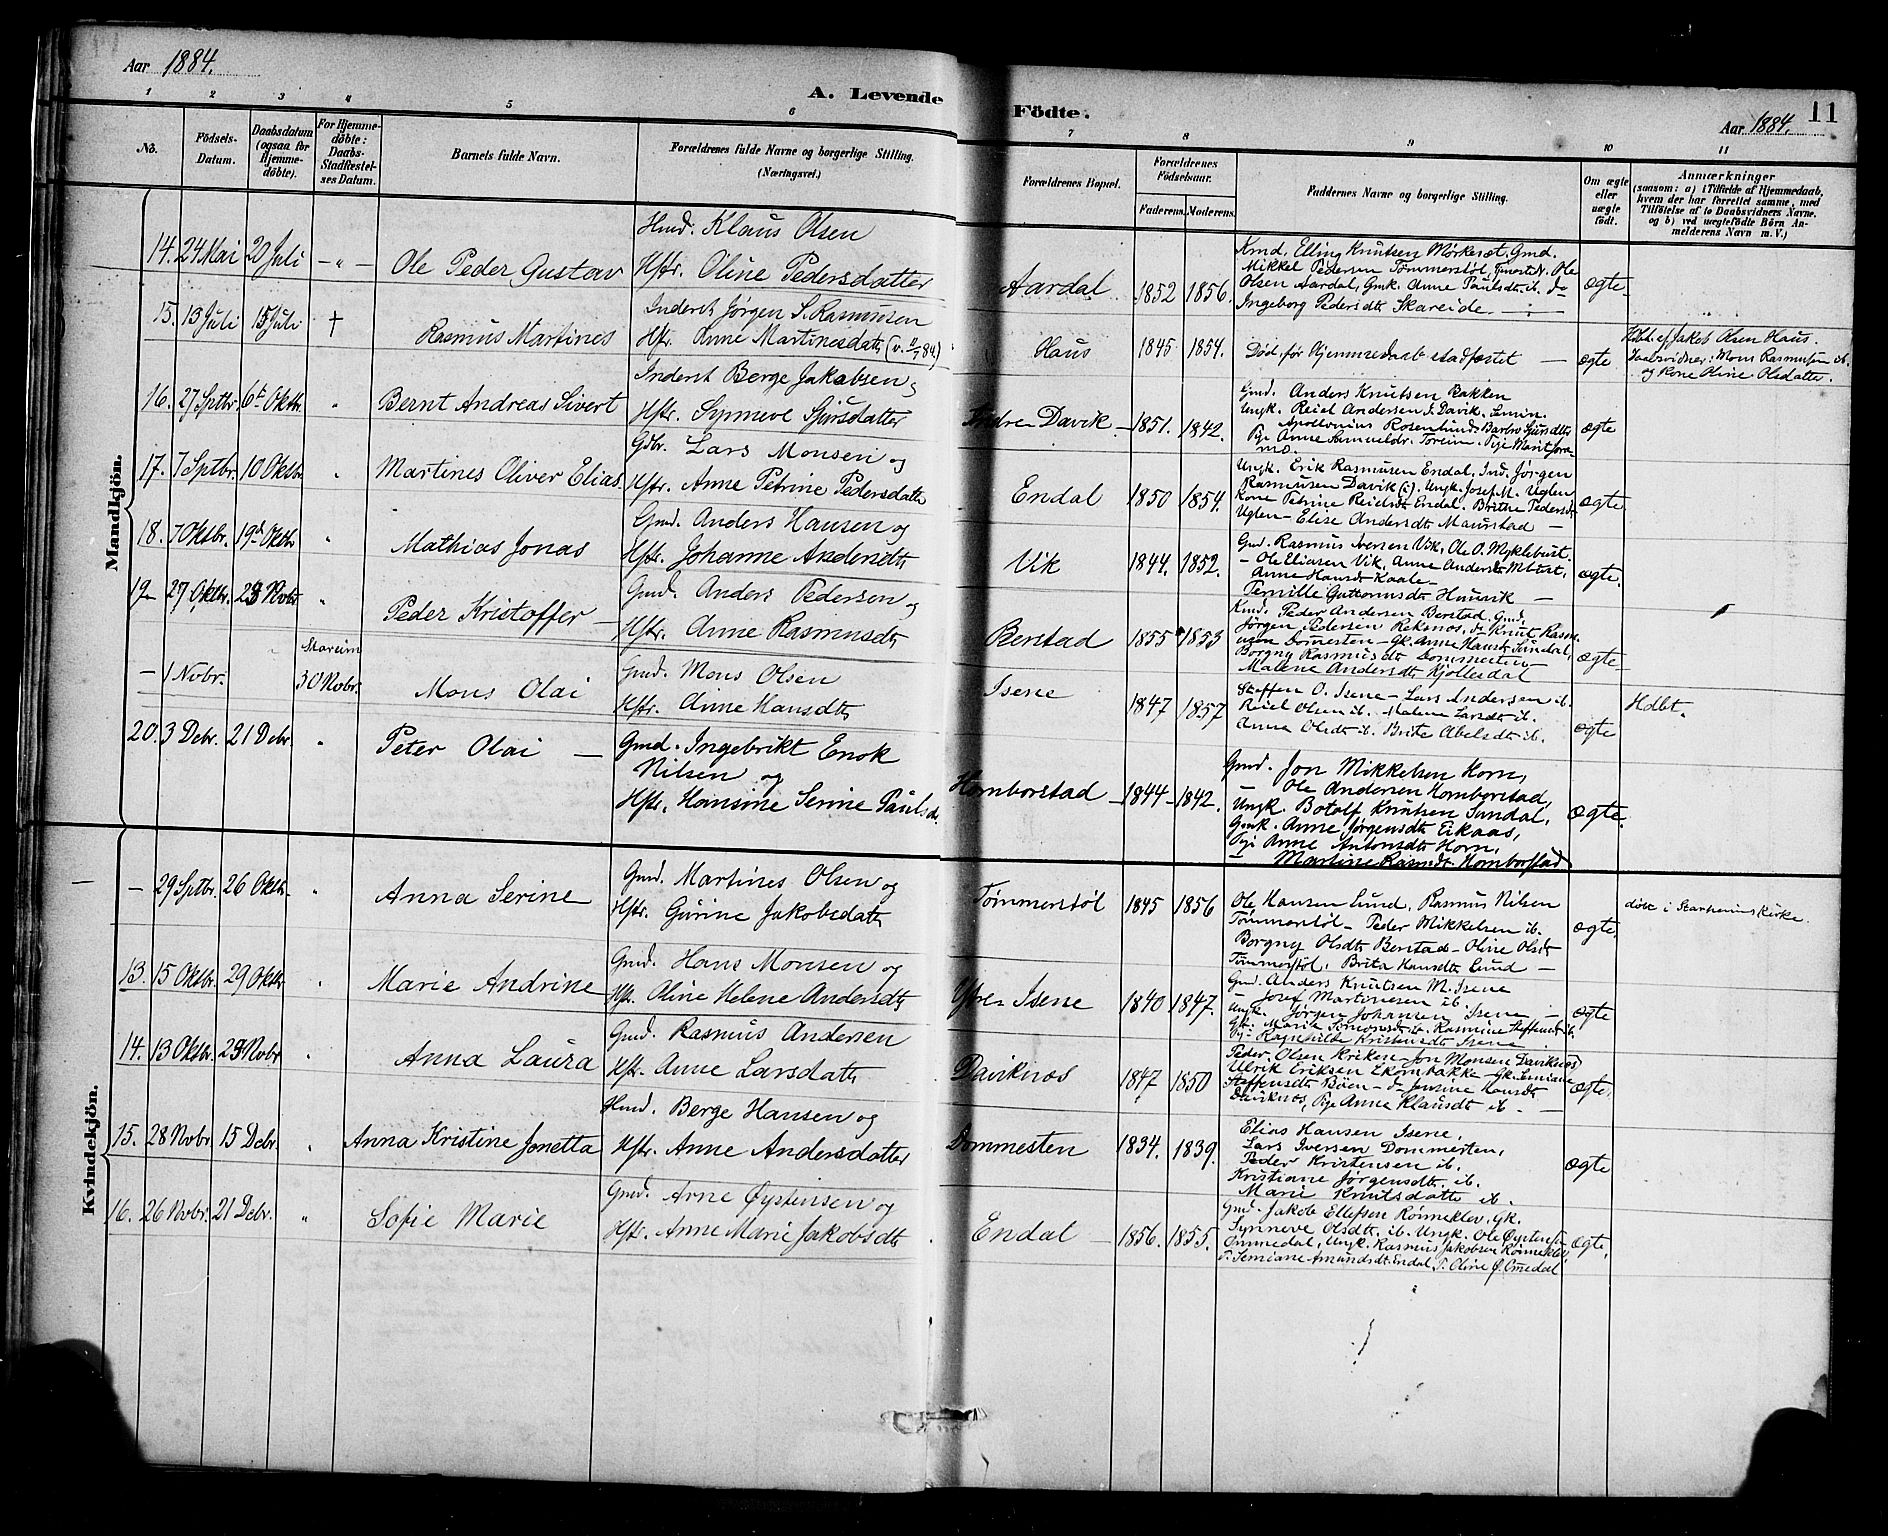 Aar 1884.
A. Levende Födte.
11
Aar 1884.
1 2 3 4 5 6 7 8 9 10 11
No.
Födsels-Datum.
Daabsdatum (ogsaa for Hjemme-döbte).
For Hjemme-döbte: Daabs-Stadfæstel-ses Datum.
Barnets fulde Navn.
Forældrenes fulde Navne og borgerlige Stilling. (Næringsvei.)
Forældrenes Bopæl.
Forældrenes Födselsaar.
Faderens. Moderens.
Faddernes Navne og borgerlige Stilling.
Om ægte eller uægte födt.
Anmærkninger
(saasom: a) i Tilfælde af Hjemmedaab, hvem der har forrettet samme, med Tilföielse af to Daabsvidners Navne, og b) ved uægtefödte Börn An-melderens Navn m. V.)
Mandkjön.
14. 24 Mai 20 Juli – „ – Ole Peder Gustav
Hmd. Klaus Olsen
Hstr. Oline Pedersdatter
Aardal 1852 1856.
Kmd. Elling Knutsen Mörkesæt, Gmd.
Mikkel Pedersen Tømmerstøl, Ole
Olsen Aardal, Gmk. Anne Paulsdtr ib. do
Ingeborg Pedersdtr Skareide.
ægte
15. 13 Juli 15 Juli † Rasmus Martines
Inderst Jørgen S. Rasmussen
Hstr. Anne Martinesdatr
Haus 1845 1854.
Död før Hjemmedaab stadfæstet —
ægte
Hdbt. af Jakob Olsen Haus.
Daabsvidner: Mons Rasmussen ib.
og Kone Oline Olsdatter.
16. 27 Sptbr. 6te Oktbr. „ Bernt Andreas Sivert
Inderst Berge Jakobsen
Hstr. Synneve Sjursdatter
Indre Davik 1851. 1842.
Gmd. Anders Knutsen Bakken
Ungk. Reiel Andersen I. Davik.
Apollonius Rosenlund. Barbro Sjursdtr
Pige Anne Samueldr. Toreim. Pige Marit
ægte
17. 7 Sptbr. 10 Oktbr. „ Martines Oliver Elias.
Gbr. Lars Monsen og
Hstr. Anne Petrine Pedersdatr
Endal 1850 1854.
Ungk. Erik Rasmussen Endal, Ind. Jørgen
Rasmussen Davik (i). Ungk. Josef M. Uglen
Kone Petrine Reielsdtr Endal. Brithe Pedersdr
Uglen – Elise Andersdtr Maurstad –
ægte.
18. 7 Oktbr. 19de Oktbr „ Mathias Jonas
Gmd. Anders Hansen og
Hstr. Johanne Andersdtr
Vik 1844. 1852.
Gmd. Rasmus Iversen Vik, Ole O. Myklebust
– Ole Eliasen Vik, Anne Andersdtr Mbust,
Anne Hansdtr Kaale –
Pernille Guttormsdtr Hunvik –
ægte.
19 – 27 Oktbr. 23 Novbr „ Peder Kristoffer –
Gmd. Anders Pedersen og
Hstr. Anne Rasmusdtr
Berstad 1855 1853
Kmd. Peder Andersen Berstad, Gmd.
Jørgen Pedersen Reksnos, do Knut Rasm-
ussen Dommesten – Gk. Anne Hansdtr Sundal,
Borgny Rasmusdtr Dommesten
Malene Andersdtr Hjollesdal
ægte
– 1 Novbr. Mareim 30 Novbr. Mons Olai
Gmd. Mons Olsen
Hstr. Anne Hansdtr
Isene 1847 1857
Steffen O. Isene – Lars Andersen ib.
Reiel Olsen ib. Malene Larsdtr ib.
Anna Olsdtr ib. Brite Abelsdtr ib.
ægte
Hdbt.
20. 3 Debr. 21 Debr. „ Peter Olai —
Gmd. Ingebrikt Enok
Nilsen og
Hstr. Hansine Serine Paulsdr.
Hornborstad – 1844 – 1842.
Gmd. Jon Mikkelsen Horn,
Ole Andersen Hornborstad,
Ungk. Botolf Knutsen Sundal,
Gmk. Anne Jørgensdtr Eikaas,
Pige Anne Antonsdtr Horn,
– Martine Rasmdtr Hornborstad
ægte.
Kvindekjön.
– 29 Sptbr. 26 Oktbr. „ Anna Serine
Gmd. Martines Olsen og
Hstr. Gurine Jakobsdatr
Tømmerstøl 1845 1856
Ole Hansen Lund, Rasmus Nilsen
Tømmerstøl – Peder Mikkelsen ib.
Borgny Olsdtr Berstad – Oline Olsdtr
Tømmerstøl. Brita Hansdtr Lund –
ægte.
døbt i Starheims kirke.
13. 15 Oktbr. 29 Oktbr „ Marie Andrine
Gmd. Hans Monsen og
Hstr. Oline Helene Andersdtr
Ytre Isene 1840 1847.
Gmd. Anders Knutsen M. Isene
– Josef Martinesen ib.
Ungk. Jörgen Johansen Isene –
Gk. Marie Simonsdtr ib. Rasmine Steffensdtr ib.
Pige Ragnhilde Kristensdtr Isene
ægte
14. 13 Oktbr. 23 Novbr „ Anna Laura
Gmd. Rasmus Andersen
Hstr. Anne Larsdatr
Daviknos 1847 1850
Peder Olsen Kriken – Jon Monsen Daviknos
Ulrik Eriksen Ekornbakke – Gk. Jemiane
Staffensdtr Böen – do Jensine Hansdtr
Daviknos, Pige Anne Klausdtr ib. –
ægte.
15. 28 Novbr 15 Debr. „ Anna Kristine Jonetta
Hmd. Berge Hansen og
Hstr. Anne Andersdatter
Dommesten 1834. 1839.
Elias Hansen Isene,
Lars Iversen Dommesten,
Peder Kristensen ib.
Kristiane Jørgensdtr ib.
Marie Knutsdatr ib.
ægte
16. 26 Novbr. 21 Debr. „ Sofie Marie
Gmd. Arne Øystensen og
Hstr. Anne Marie Jakobsdtr
Endal – 1856. 1855.
Gmd. Jakob Ellefsen Rönneklev, Gk.
Synneve Olsdtr ib. Ungk. Ole Øystensen
Ommedal, Ungk. Rasmus Jakobsen Rönneklev,
P. Jemiane Amundsdtr Endal, P. Oline Ø. Omedal
ægte.